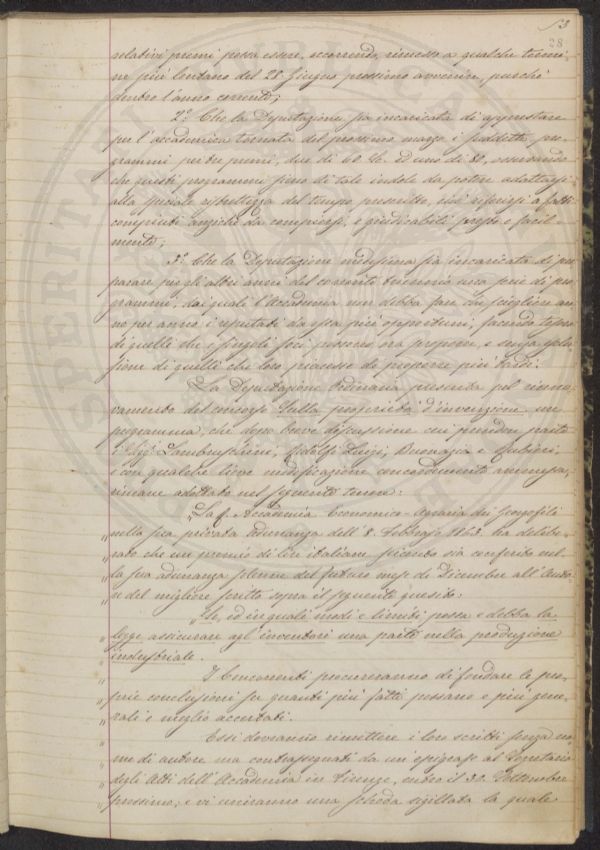 53
28
relativi premj possa essere, occorrendo, rimesso a qualche termi-
ne più lontano del 28 Giugno prossimo avvenire, purché
dentro l'anno corrente;
2.° Che la Deputazione sia incaricata di apprestare
per l'accademica tornata del prossimo marzo i suddetti pro-
grammi per tre premj, due di 60. Le. ed uno di 80, osservando
che questi programmi sieno di tale indole da potere adattarsi
alla speciale ristrettezza del tempo prescritto, cioè riferirsi a fatti
compiuti anziché da compiersi, e giudicabili presto e facil-
mente;
3.° Che la Deputazione medesima sia incaricata di pre-
parare per gli altri anni del corrente triennio una serie di pro-
grammi, dai quali l'Accademia non debba fare che scegliere an-
no per anno i reputati da essa più opportuni, facendo tesoro
di quelli che i singoli socj possono ora proporre, e senza esclu-
sione di quelli che loro piacesse di proporre più tardi.
La Deputazione Ordinaria presenta pel rinno-
vamento del concorso sulla proprietà d'invenzione un
programma, che dopo breve discussione cui prendon parte
i Sigg. Lambruschini, Ridolfi Luigi, Buonazia e Rubieri,
e con qualche lieve modificazione concordemente ammessa,
rimane adottato nel seguente tenore:
„ La R. Accademia Economico-Agraria dei Georgofili
nella sua privata adunanza dell'8. Febbrajo 1863. ha delibe-
„ rato che un premio di lire italiane seicento sia conferito nel-
„ la sua adunanza solenne del futuro mese di Dicembre all'Auto-
„ re del migliore scritto sopra il seguente quesito:
„ Se, ed in quali modi e limiti possa e debba la
„ legge assicurare agl'inventori una parte nella produzione
„ industriale.
„ I Concorrenti procureranno di fondare le pro-
„ prie conclusioni su quanti più fatti possano e più gene-
„ rali e meglio accertati.
„ Essi dovranno rimettere i loro scritti senza no-
„ me di autore ma contrassegnati da un'epigrafe al Segretario
„ degli Atti dell'Accademia in Firenze, entro il 30. Settembre
„ prossimo; e vi uniranno una scheda sigillata la quale